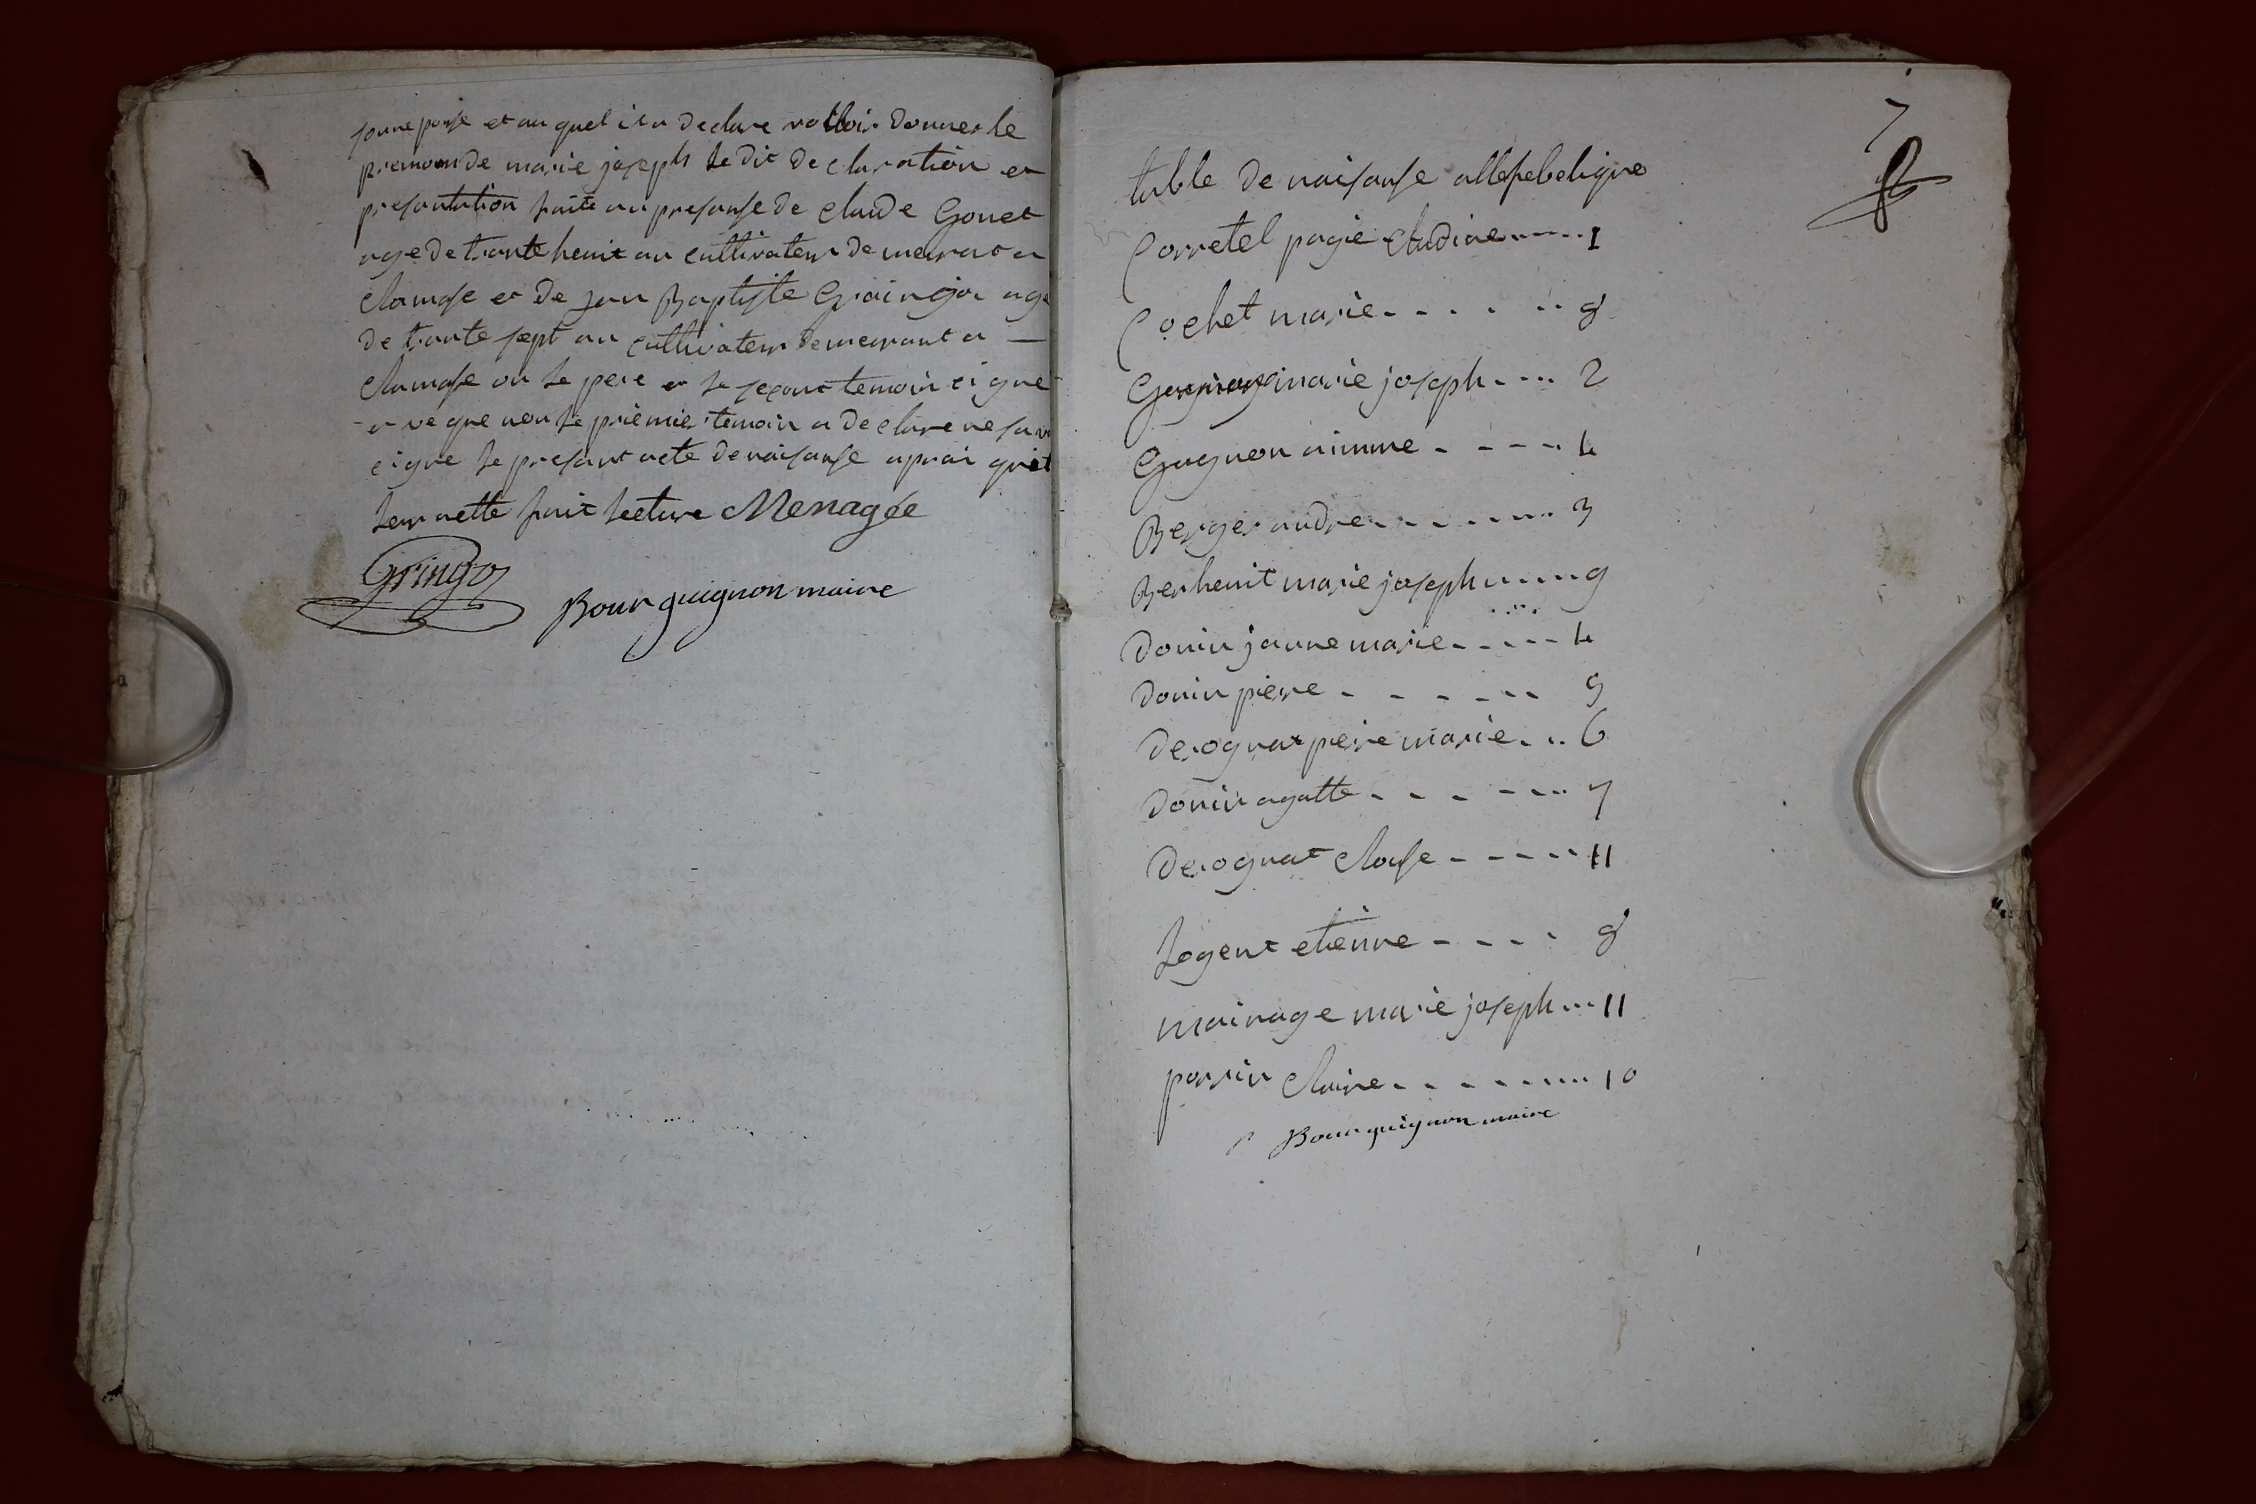 sonne panse et au quel il a declare volloir donner le
premom de marie joseph le dit declaration et
presantation faite au presanse de claude Gonet
age de trante heuit an cultivateur demeurat a
Clamose et de jan Baptiste Graingon age
de trante sept an cultivateur demeurant a —
Clamose ou le pere et le segont temoin cigne
avéque nou le prémie temoin a declare ne sav
cigne le presant acte de naisanse aprai qu'il
leur aette fait lecture Menagée
Gringoz
Bourguignon maire
7
table de naisanse allefebetiqre
Corretel pagie cludine 1
Cochet marie 8
marie joseph 2
Gagneon aimme 4
Berger andre 3
Berheuit marie joseph 9
Donin janne marie 4
Donin piere 5
Derognat peire marie 6
Donin agatte 7
Derognat Clouse 11
Jogent etienne 8
mainage marie joseph 11
porrin Claire 10
Bourguignon maire